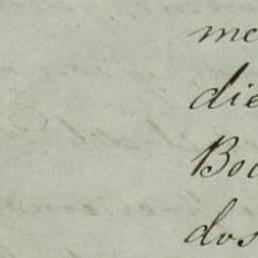 me
die
Boo
dos